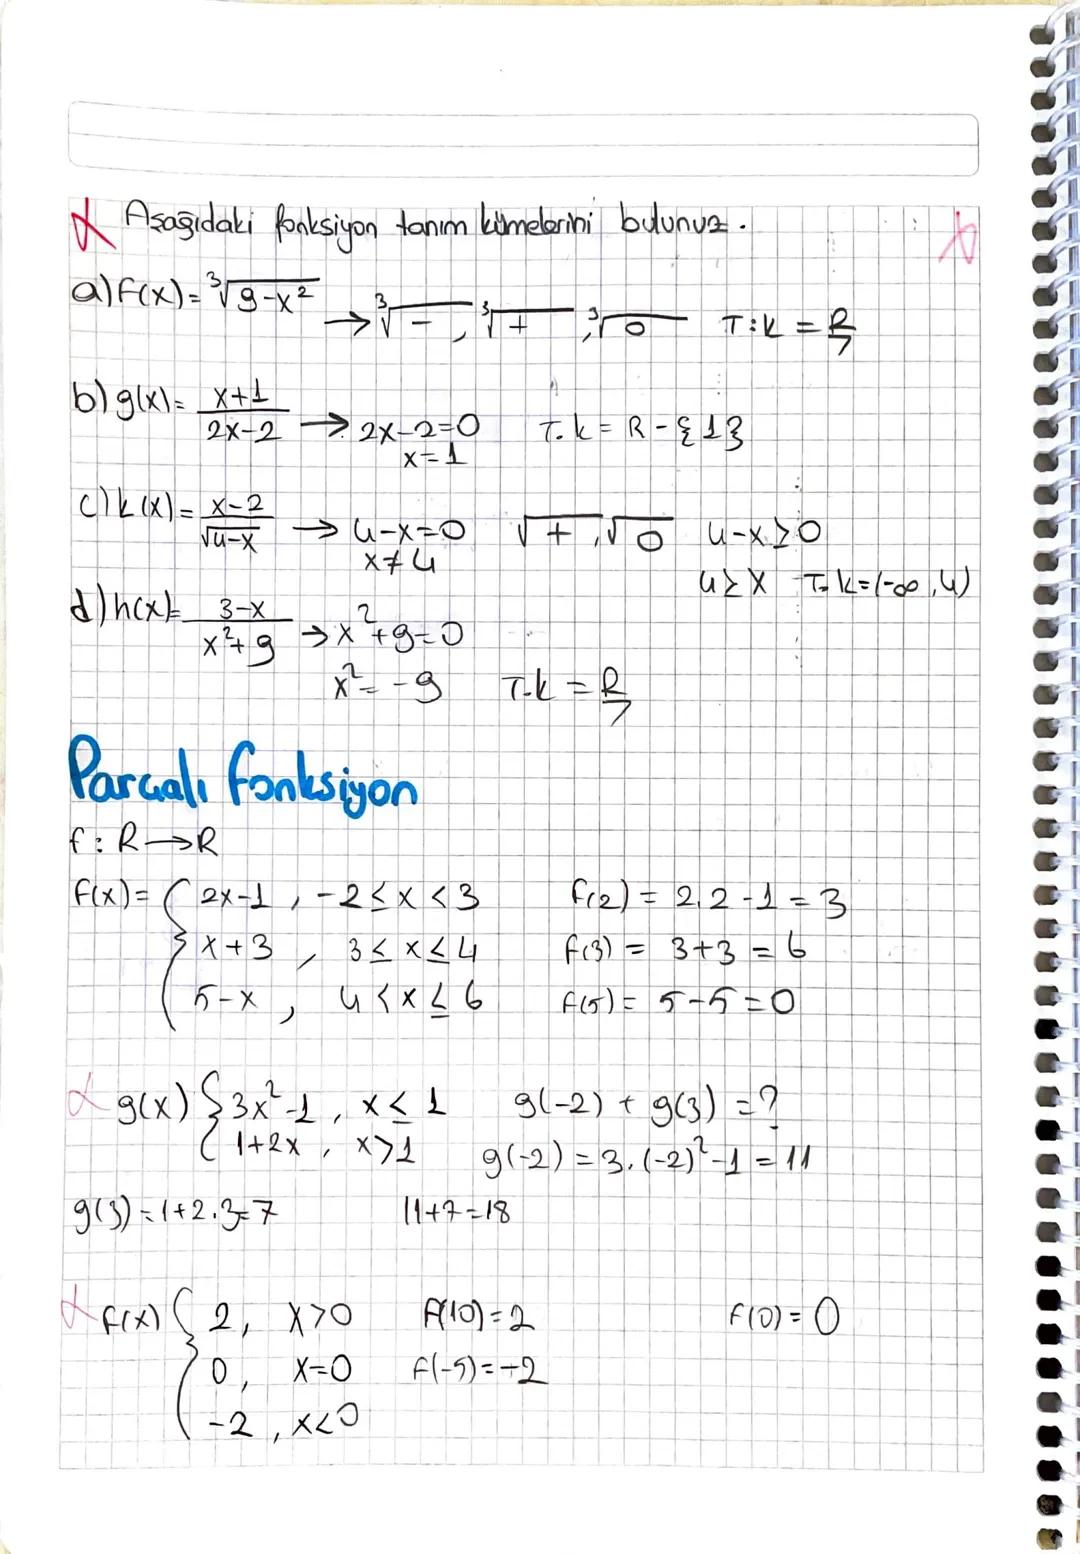 Aşağıdaki fonksiyon tanım kümelerini bulunuz.
a) f(x) = ³√(9-x²) → ³√-, ³√+, ³√0 T.k = R
b) g(x) = (x+1)/(2x-2) → 2x-2=0 T.k = R-{1}
x=1
c) k(x) = (x-2)/√(4-x) → 4-x=0 √+, √0 4-x≥0
x≠4
4≥x T.k=(-∞,4)
d) h(x) = (3-x)/(x²+9) → x²+9=0
x²=-9 T.k = R
Parçalı fonksiyon
f: R→R
f(x) = { 2x-1, -2≤x<3 f(2) = 2.2-1=3
x+3, 3≤x≤4 f(3) = 3+3=6
5-x, 4<x≤6 f(5) = 5-5=0
g(x) { 3x²-1, x≤1 g(-2)+g(3)=?
1+2x, x>1 g(-2)=3.(-2)²-1=11
g(3)=1+2.3=7 11+7=18
f(x) { 2, x>0 f(10)=2 f(0)=0
0, x=0 f(-5)=-2
-2, x<0